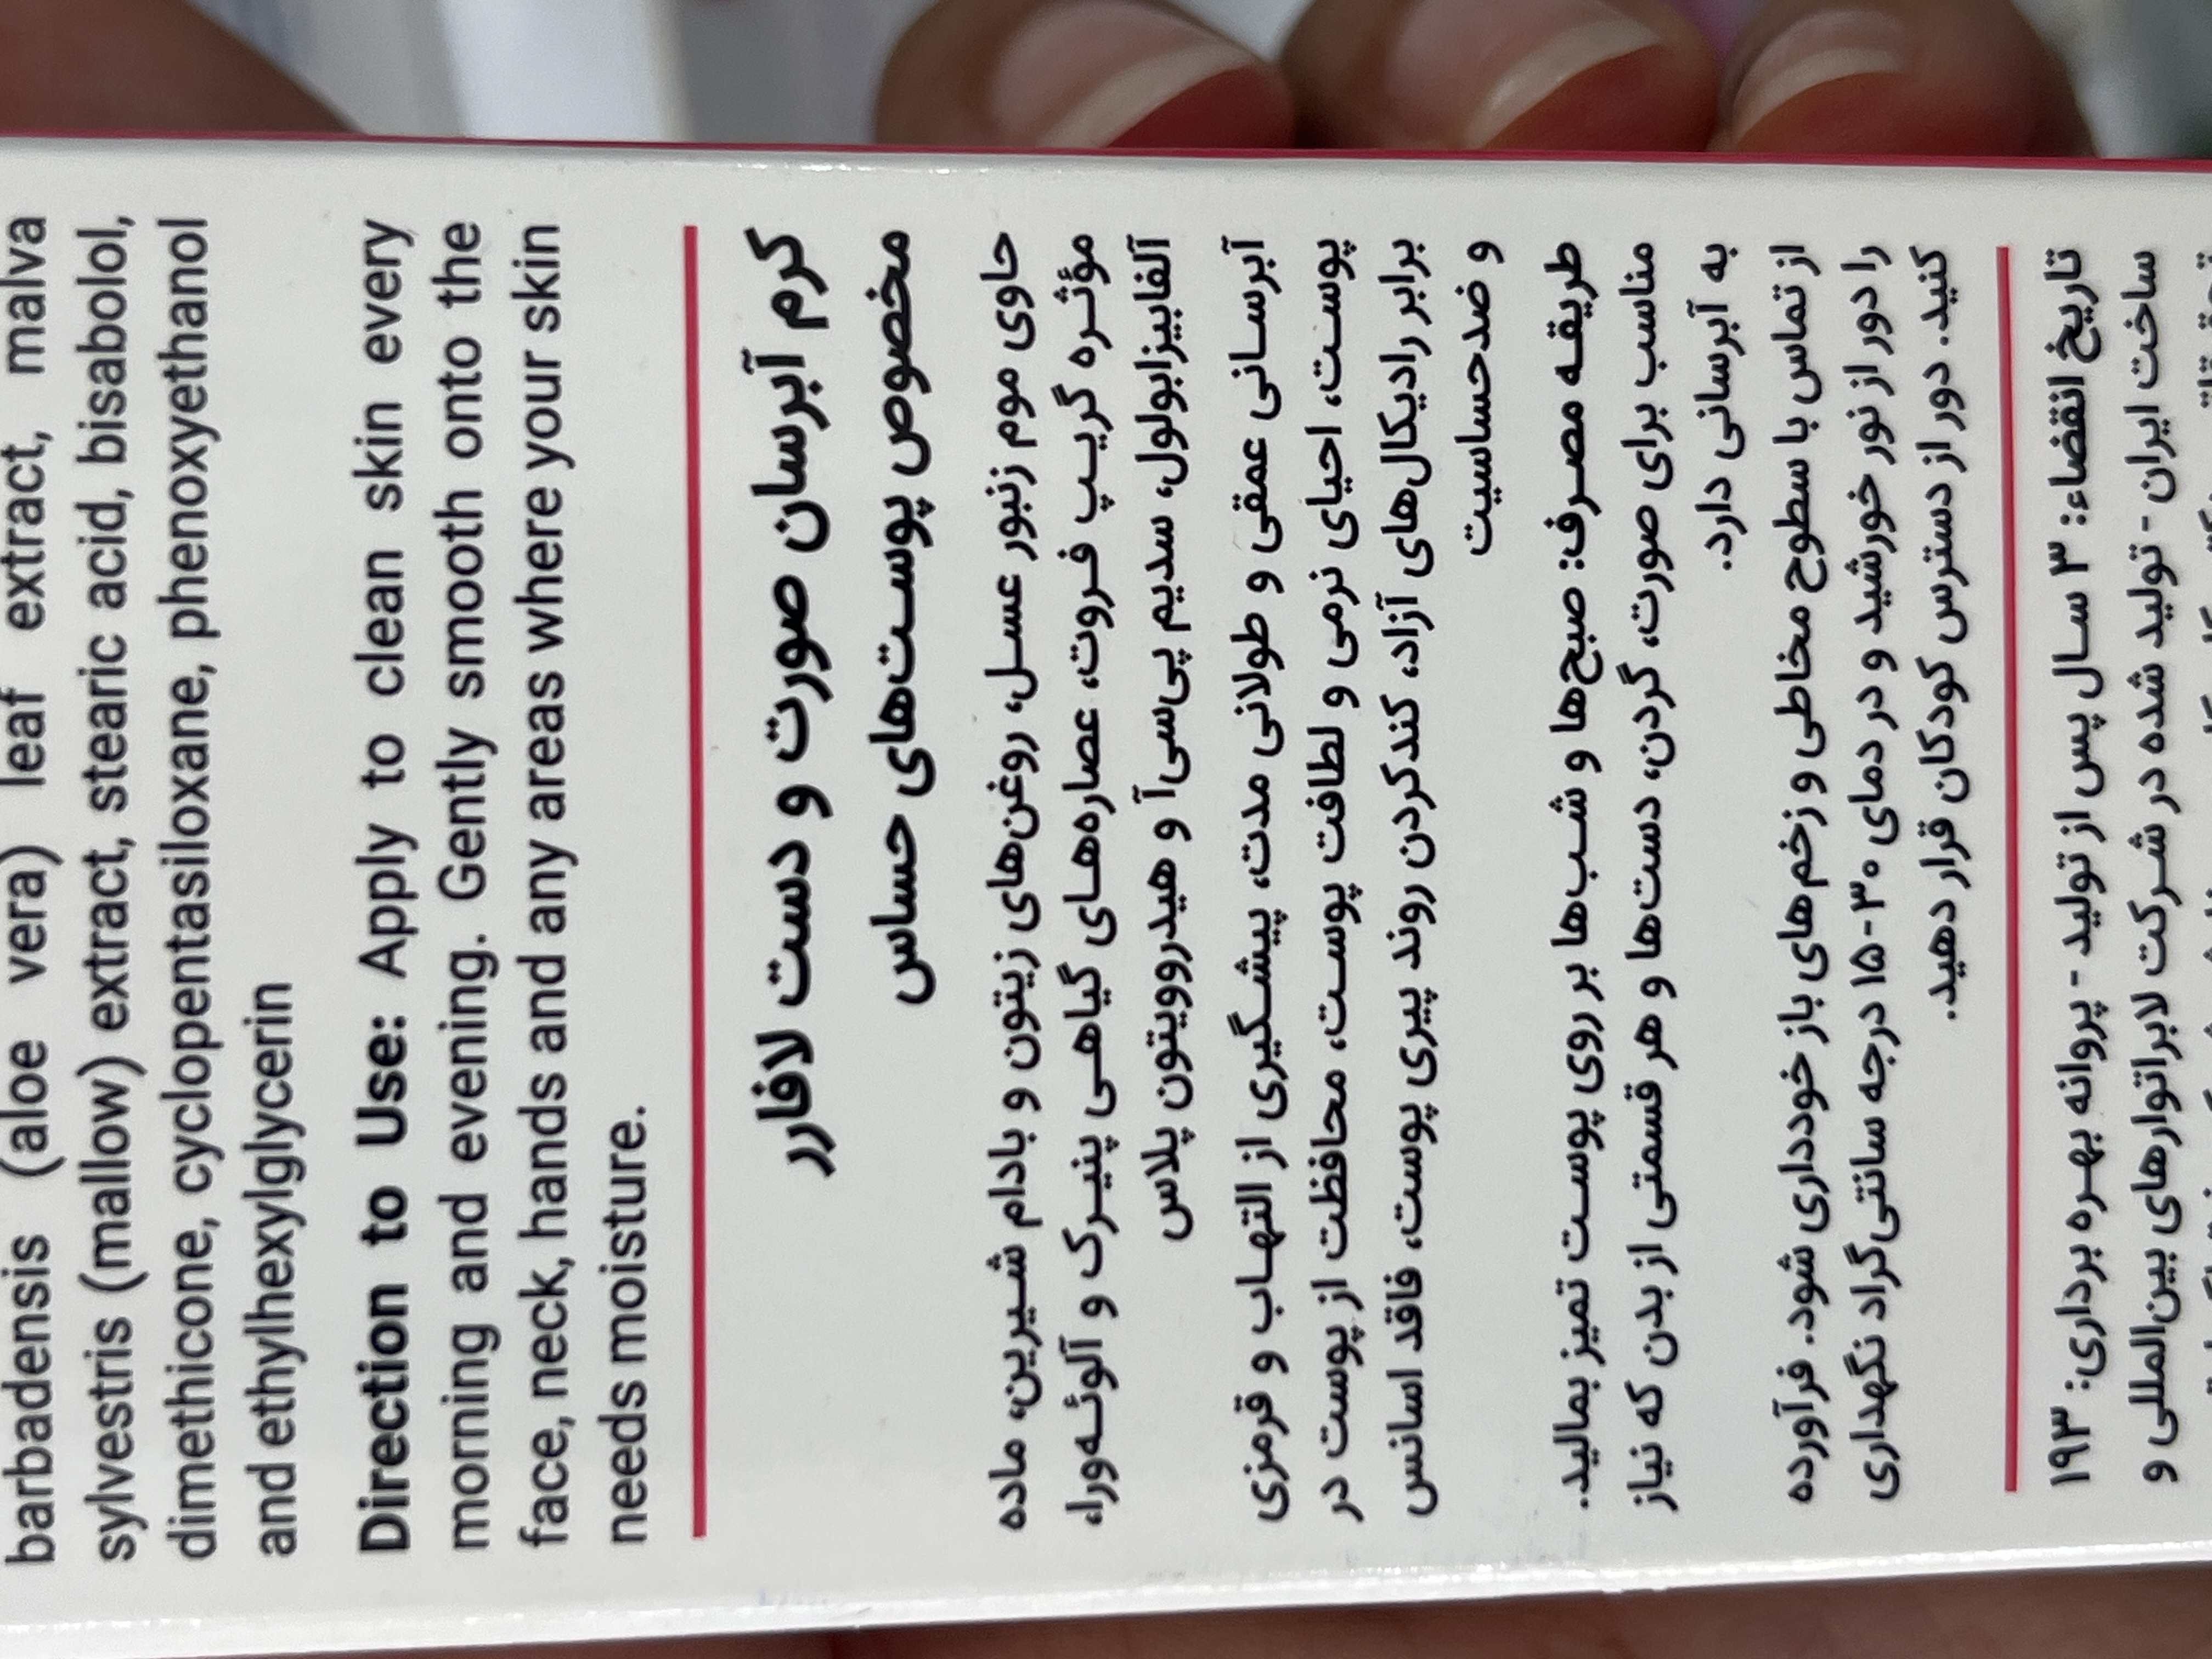 barbadensis (aloe vera) leaf extract, malva
sylvestris (mallow) extract, stearic acid, bisabolol,
dimethicone, cyclopentasiloxane, phenoxyethanol
and ethylhexylglycerin
Direction to Use: Apply to clean skin every
morning and evening. Gently smooth onto the
face, neck, hands and any areas where your skin
needs moisture.
کرم آبرسان صورت و دست لافارر
مخصوص پوست‌های حساس
حاوی موم زنبور عسل، روغن‌های زیتون و بادام شیرین، ماده
مؤثره گریپ فروت، عصاره‌های گیاهی پنیرک و آلوئه‌ورا،
آلفابیزابولول، سدیم پی‌سی‌آ و هیدروویتون پلاس
آبرسانی عمقی و طولانی مدت، پیشگیری از التهاب و قرمزی
پوست، احیای نرمی و لطافت پوست، محافظت از پوست در
برابر رادیکال‌های آزاد، کندکردن روند پیری پوست، فاقد اسانس
و ضدحساسیت
طریقه مصرف: صبح‌ها و شب‌ها بر روی پوست تمیز بمالید.
مناسب برای صورت، گردن، دست‌ها و هر قسمتی از بدن که نیاز
به آبرسانی دارد.
از تماس با سطوح مخاطی و زخم‌های باز خودداری شود. فرآورده
را دور از نور خورشید و در دمای ۳۰-۱۵ درجه سانتی‌گراد نگهداری
کنید. دور از دسترس کودکان قرار دهید.
تاریخ انقضاء: ۳ سال پس از تولید - پروانه بهره برداری: ۱۹۳
ساخت ایران - تولید شده در شرکت لابراتوارهای بین‌المللی و